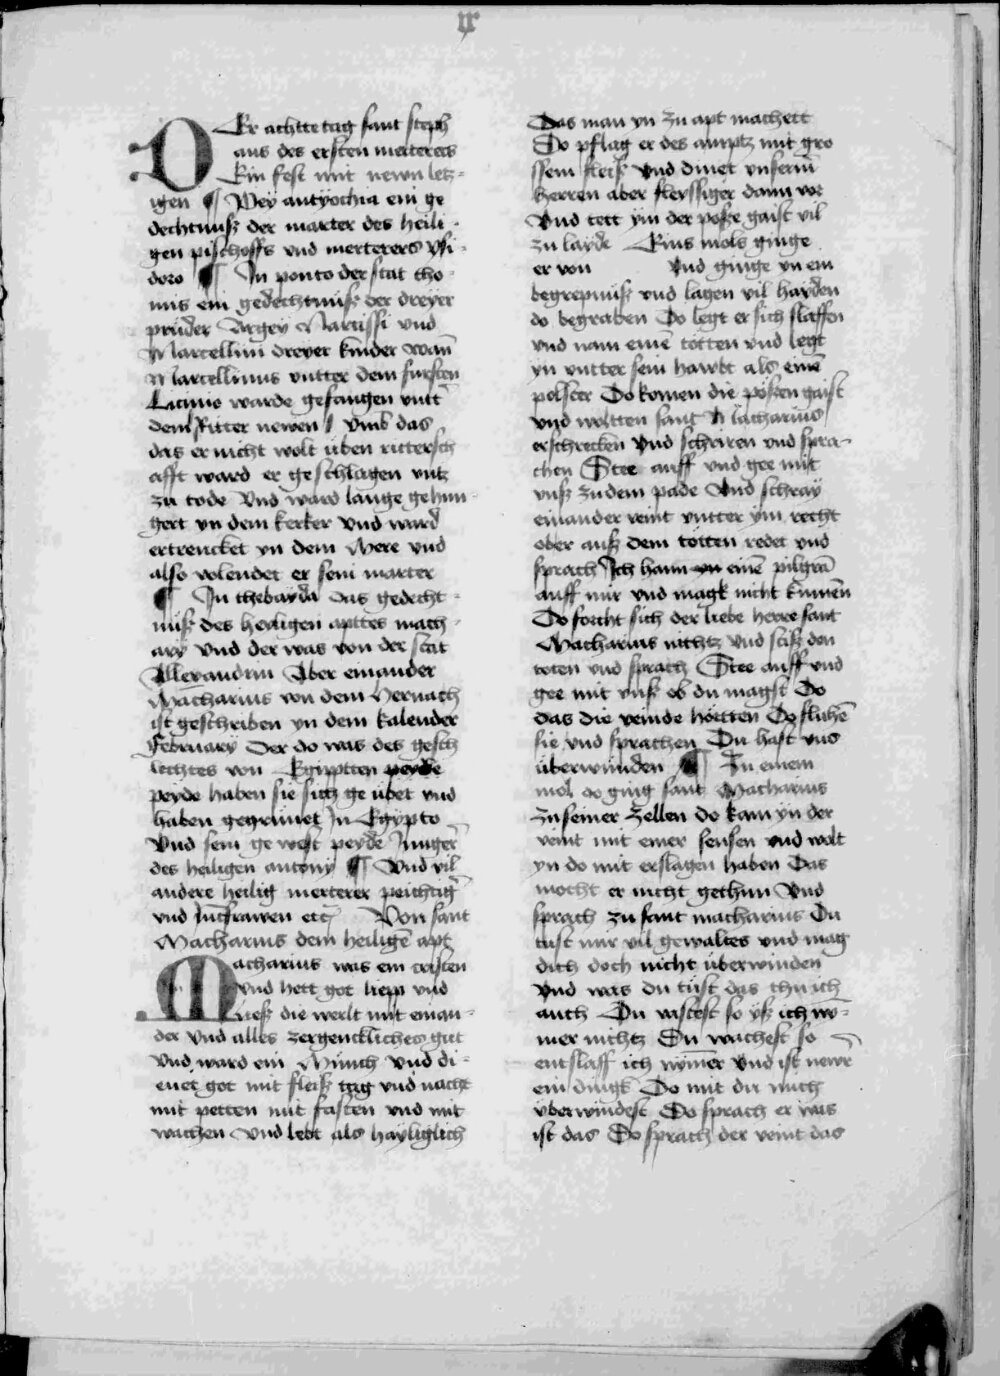 DEr achtte tag sant steph
ans des ersten merterers
Ein fest mit newn letz-
igen ¶ Wey antyochia ein ge
dechtnuß der marter des heili-
gen pischoffs vnd merterers ysi-
doro ¶ In ponto der stat tho-
mis ein gedechtnuß der dreyer
prüder Argey Nartissi vnd
Marcellini dreyer kinder wan̄
Marcellinus vntter dem fursten
Licinio warde gefangen vntt̄
dem Ritter newen vmb das
das er nicht wolt üben rittersch
afft ward er geschlagen vntz
zu tode Vnd ward lange gehun-
gert yn dem kerker Vnd ward
ertrencket yn dem Mere vnd
also volendet er sein marter
¶ In thebayda das gedecht-
nuß des heiligen apttes mach-
ary Vnd der was von der stat
Allexandrin Aber einander
Macharius von dem Hernach
ist geschriben yn dem kalender
February Der do was des gesch
lechtes von Egyptten peyde
peyde haben sie sich ge übet vnd
haben gegrünet In Egypto
Vnd sein ge west peyde Junger̄
des heiligen antony ¶ Vnd vil
andere heilig merterer peichtiḡ
vnd Junckfrawen etc̄ Von sant
Macharius dem heiligē apt
Macharius was ein cristen
Vnd hett got liep vnd
ließ die werlt mit einan-
der Vnd alles zergenckliches gut
Vnd ward ein Münch Vnd di-
enet got mit fleiß tag vnd nacht
mit petten mit fasten vnd mit
wachen Vnd lebt als hayliglich
Das man yn zu apt machett
Do pflag er des amptz mit gro
ssem fleiß Vnd dinet vnserm̄
herren aber fleyssiger dann vor
Vnd tett ym der pöße gaist vil
zu layde Eins mols ginge
er von Vnd ginge yn ein
begrepnuß vnd lagen vil hayden
do begraben Do legt er sich slaffen
vnd nam einē totten vnd legt
yn vntter sein hawbt als einē
polster Do komen die pößen gaist
vnd woltten sant Macharius
erschrecken Vnd schriren vnd spra-
chen Stee auff vnd gee mit
vnß zu dem pade Vnd schray
einander veint vntter ym recht
ober auß dem totten redet vnd
sprach Ich hann yn einē pilgrā
auff mir vnd magk nicht kumen
Do forcht sich der liebe herre sant
Macharius nichtz Vnd stiß den
toten vnd sprach Stee auff vnd
gee mit vnß ob du magst Do
das die veinde hörtten Do fluhē
sie vnd sprachen Du hast vns
überwunden ¶ Zu einem
mol do ging sant Macharius
zu seiner zellen do kam yn der
veint mit einer sensen vnd wolt
yn do mit erslagen haben Das
mocht er nicht gethun Vnd
sprach zu sant macharius Du
tust mir vil gewaltes vnd mag
dich doch nicht überwinden
Vnd was du tüst das thu ich
auch Du vastest so yß ich ny-
mer nichtz Du wachest so
entslaff ich nymer Vnd ist newr̄
ein dingk Do mit du mich
überwindest Do sprach er was
ist das Do sprach der veint das